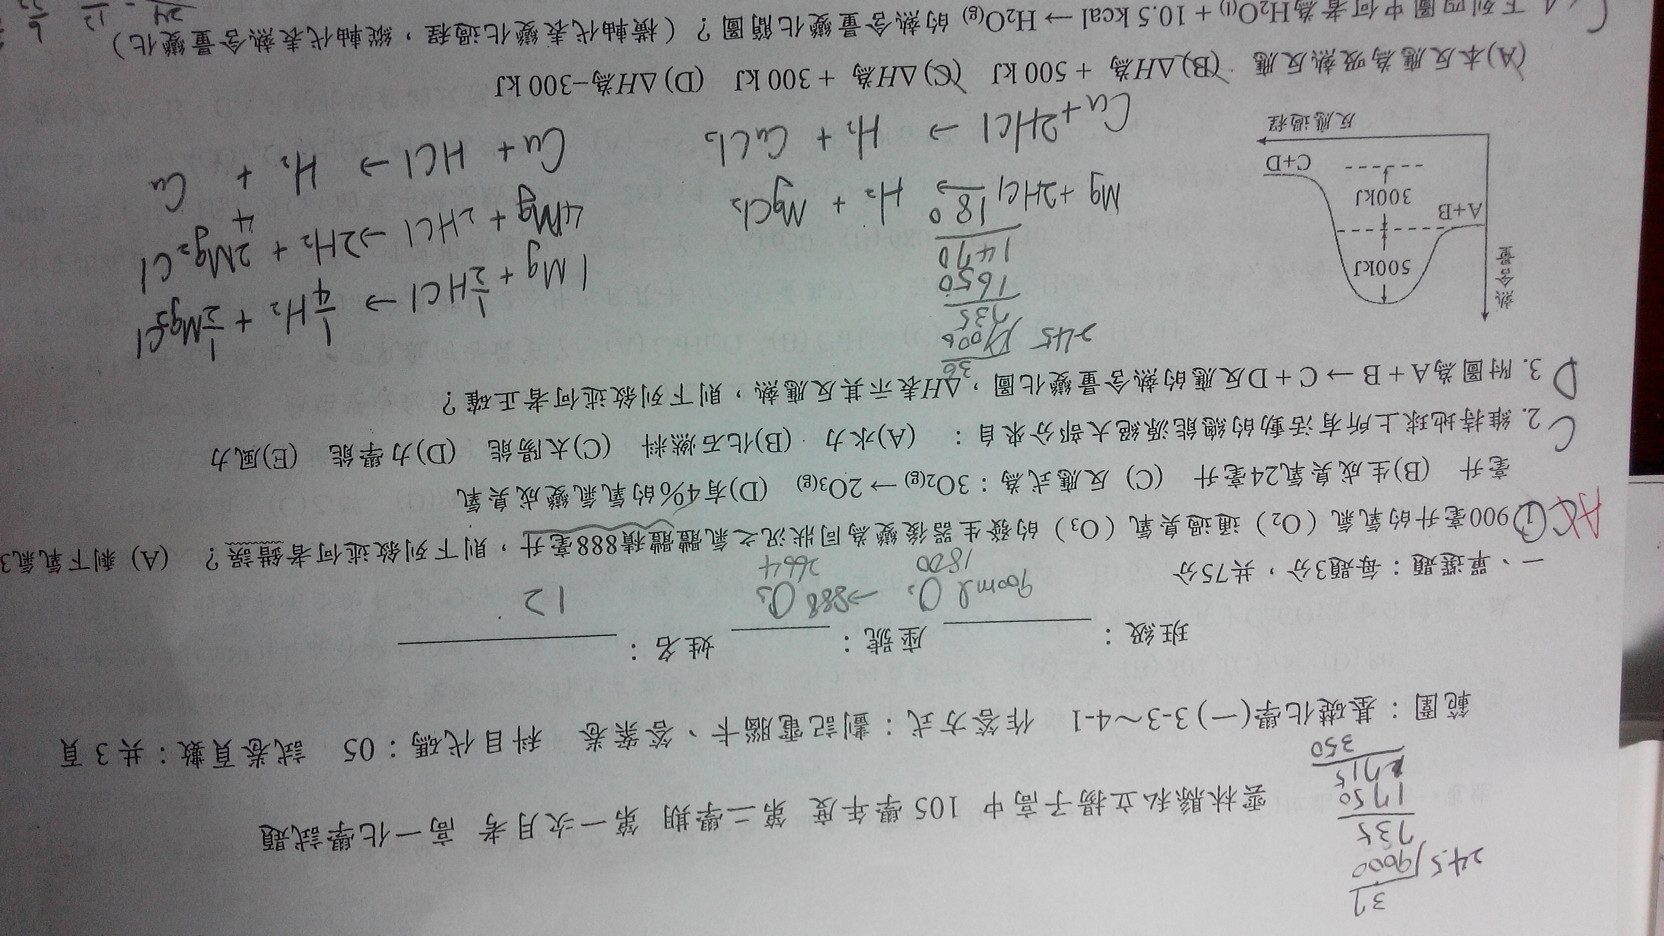 雲林縣私立揚子高中 105 學年度 第二學期 第一次月考 高一化學試題
範圍：基礎化學(一) 3-3～4-1 作答方式：劃記電腦卡、答案卷 科目代碼：05 試卷頁數：共 3 頁
班級： 座號： 姓名：
12
900ml O₂ →888 O₃
1800 2664
一、單選題：每題3分，共75分
AC
900毫升的氧氣（O₂）通過臭氧（O₃）的發生器後變為同狀況之氣體體積888毫升，則下列敘述何者錯誤？ (A) 剩下氧氣3
毫升 (B)生成臭氧24毫升 (C) 反應式為：3O₂(g) → 2O₃(g) (D)有4%的氧氣變成臭氧
C 2. 維持地球上所有活動的總能源絕大部分來自： (A)水力 (B)化石燃料 (C)太陽能 (D)力學能 (E)風力
D 3. 附圖為A＋B → C＋D反應的熱含量變化圖，ΔH表示其反應熱，則下列敘述何者正確？
熱含量
500kJ
A+B
300kJ
C+D
反應過程
24.5
9000
735
1650
1470
180
1Mg + ½HCl → ¼H₂ +
4Mg + 2HCl → 2H₂ + 2Mg₂Cl
4
Mg + 2HCl → H₂ + MgCl₂
Cu + HCl → H₂ + Cu
Cu + 2HCl → H₂ + CuCl₂
(A)本反應為吸熱反應 (B)ΔH為 + 500 kJ (C)ΔH為 + 300 kJ (D)ΔH為−300 kJ
下列四圖中何者為H₂O(l) + 10.5 kcal → H₂O(g) 的熱含量變化簡圖？（橫軸代表變化過程，縱軸代表熱含量變化）